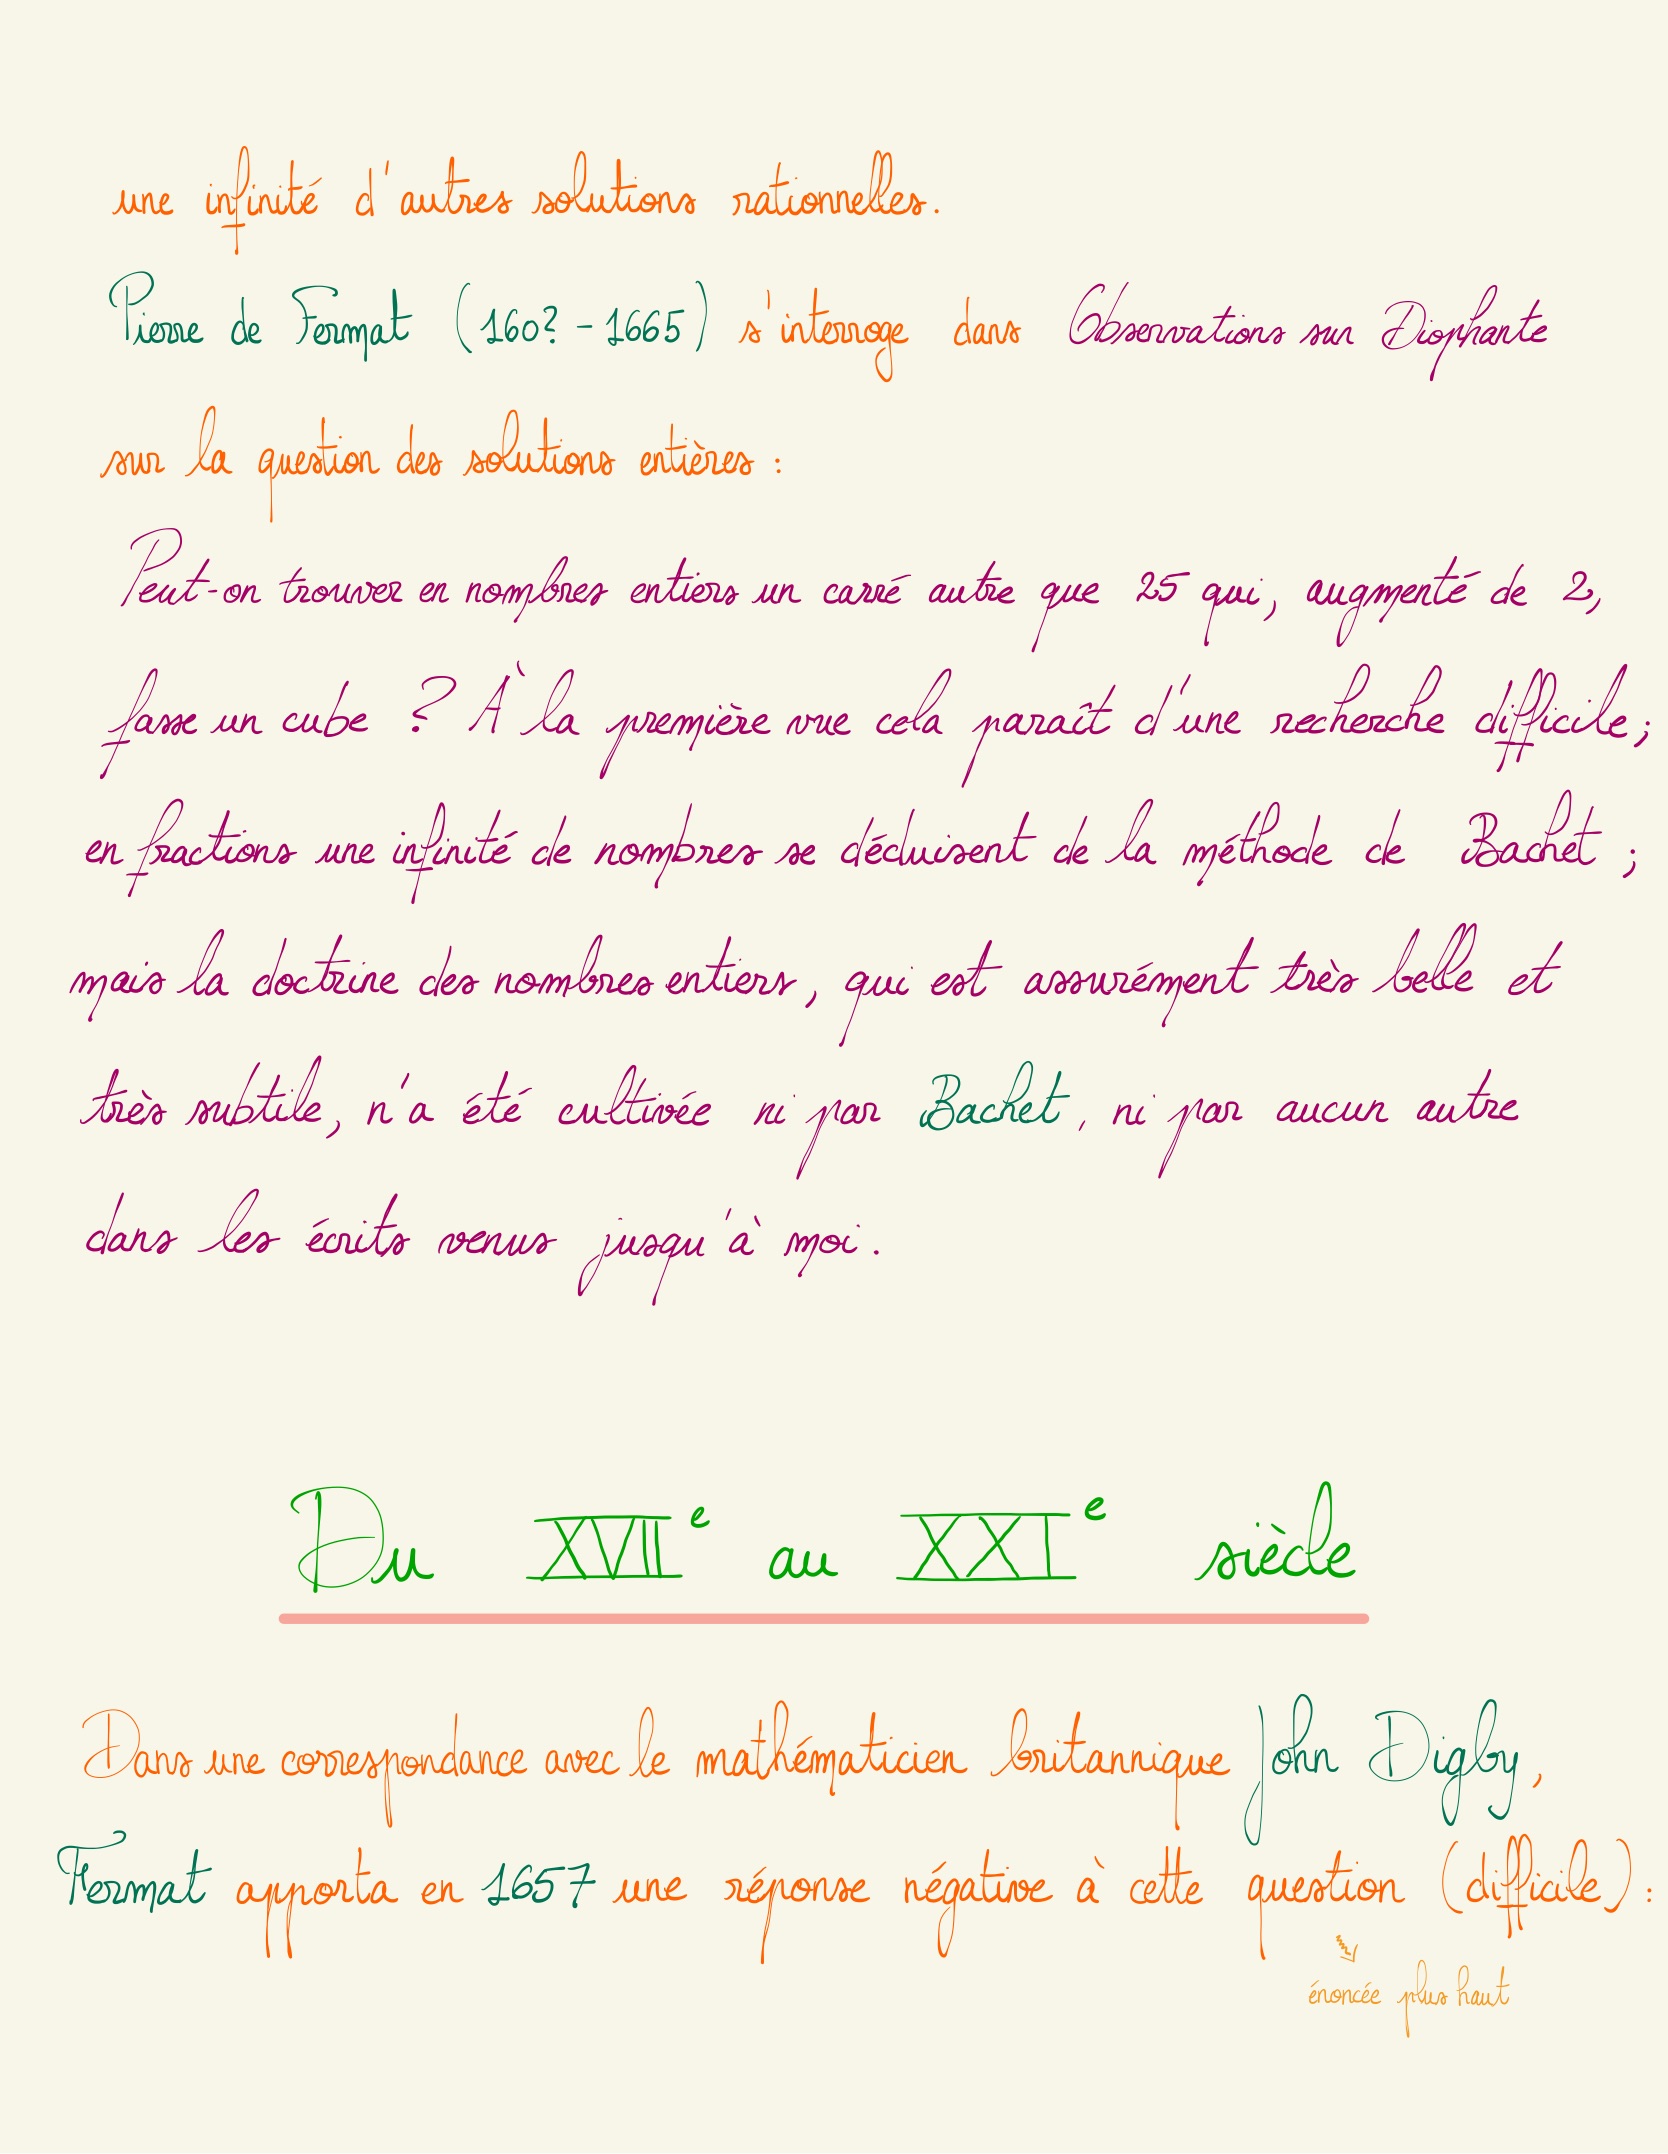 une infinité d'autres solutions rationnelles.
Pierre de Fermat (160? - 1665) s'interroge dans Observations sur Diophante
sur la question des solutions entières :
Peut-on trouver en nombres entiers un carré autre que 25 qui, augmenté de 2,
fasse un cube ? À la première vue cela paraît d'une recherche difficile ;
en fractions une infinité de nombres se déduisent de la méthode de Bachet ;
mais la doctrine des nombres entiers, qui est assurément très belle et
très subtile, n'a été cultivée ni par Bachet, ni par aucun autre
dans les écrits venus jusqu'à moi.
Du XVIIe au XXIe siècle
Dans une correspondance avec le mathématicien britannique John Digby,
Fermat apporta en 1657 une réponse négative à cette question (difficile) :
énoncée plus haut